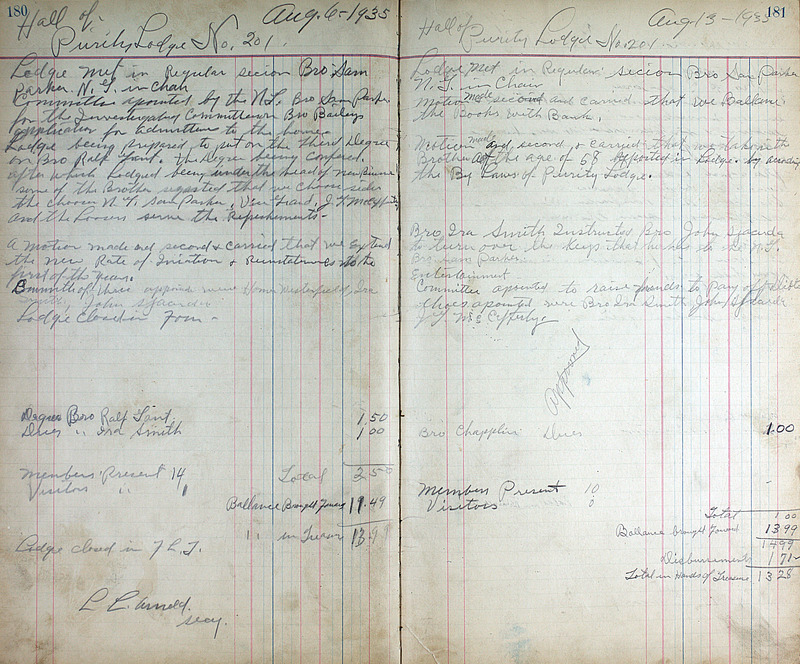 180
Hall of
Aug. 6 - 1935
Purity Lodge No. 201.
Lodge met in Regular secion Bro. Sam
Parker N. G. in Chair
Committee apointed by the N.G. Bro Sam Parker
for the Investigating Committee on Bro Baileys
application for admittence to the home
Lodge being prepared to put on the third Degree
on Bro Ralf Fant. The Degree being Confered.
after which Lodged being under the head of New Business
some of the Brother sugested that we choose sides
the choosen N. G. Sam Parker, Vice Grand, J. T.
and the Loosers serve the Refreshments -
A motion made and second & carried that we Extend
the new Rate of Iniation & to the
first of the years.
Committe of three apointed were Westerfield, Ira
Smith, John
Lodge Closed in Form -
Degree Bro Ralf Fant 1.50
Dues " Ira Smith 1.00
Members Present 14 Total 2.50
Visitors " 1
Ballance Brought Forward 11.49
" in Treasure 13.99
Lodge closed in F. L. T.
L. L. Arnold.
secy.
181
Hall of
Aug 13 - 1935
Purity Lodge No. 201
Lodge met in Regular secion Bro Sam Parker
N. G. in Chair
Motion made second and carried that we Ballance
the Books with Bank.
Motion made and second, & carried that we
Brother of the age of 68 in Lodge. by
the By Laws of Purity Lodge.
Bro Ira Smith Instructed Bro John
to turn over the Keys that he has to the N.G.
Bro Sam Parker.
Entertainment
Committe apointed to raise funds to pay off debts
Those apointed were Bro Ira Smith John
J. T.
Approved
Bro Chapplin Dues 1.00
Members Present 10
Visitors 0
Total 1.00
Ballance brought Forward 13.99
14.99
Disbursements 1.71
Total in Hands of Treasure 13.28